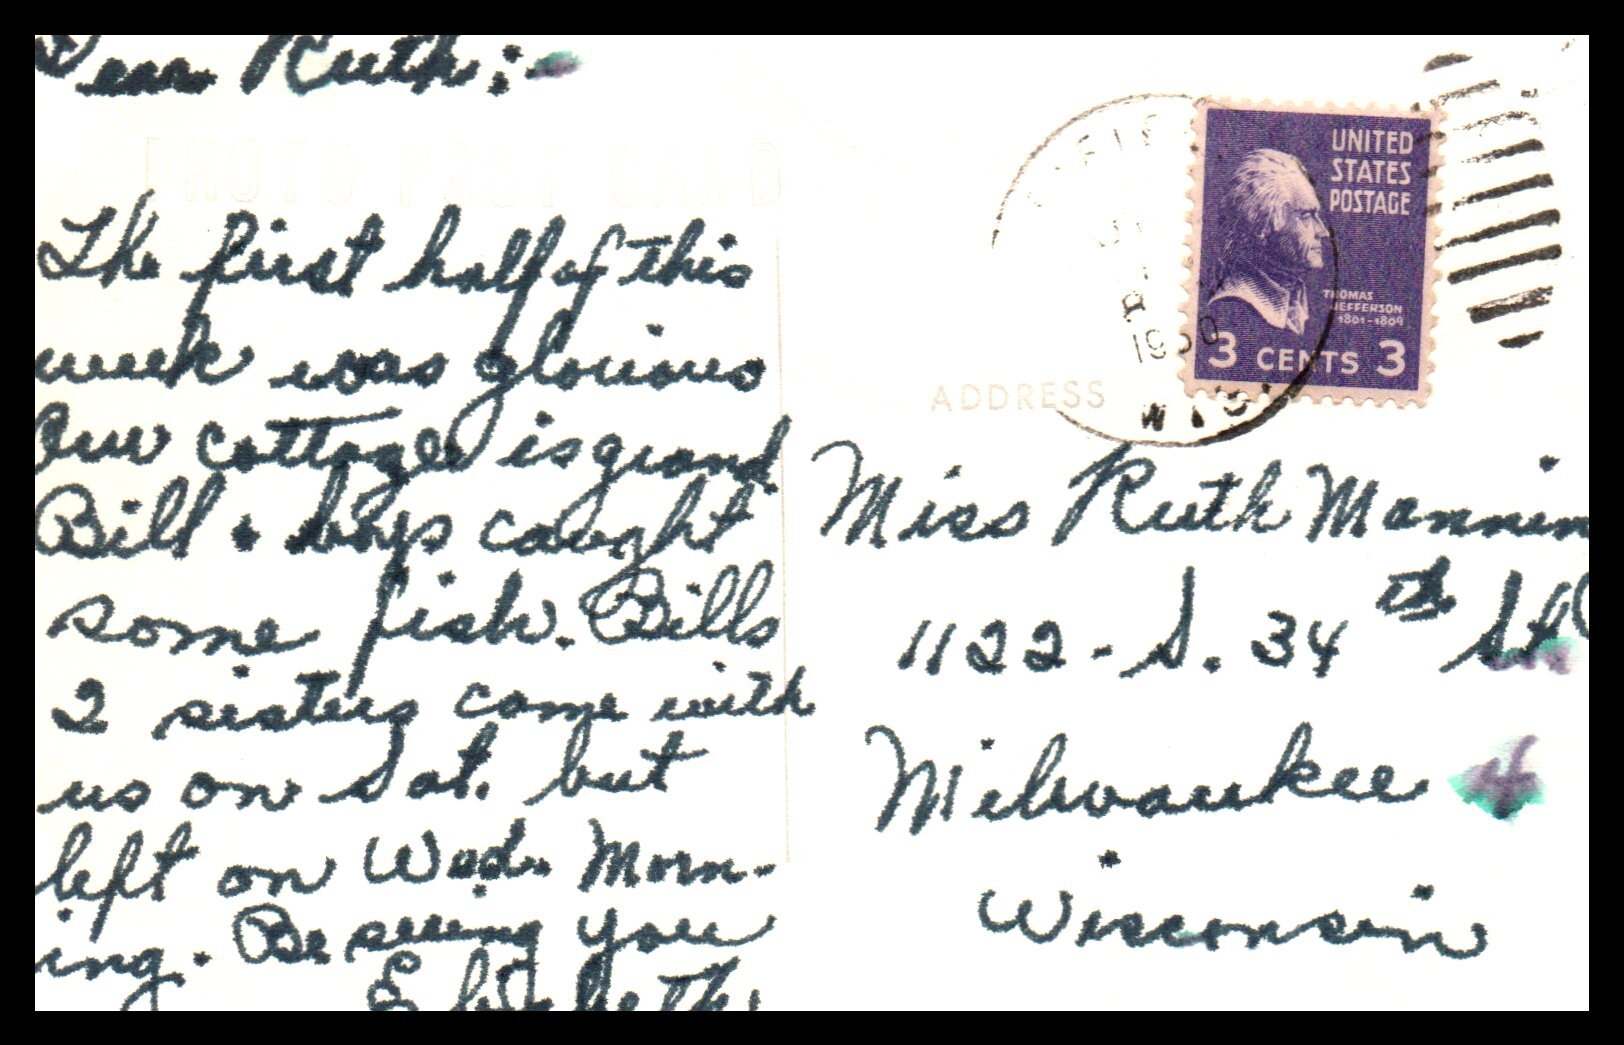 Dear Ruth:-
PHOTO POST CARD
The first half of this
week was glorious
Our cottage is grand
Bill + boys caught
some fish. Bills
2 sisters came with
us on Sat. but
left on Wed. Morn-
ing. Be seeing you
Elizabeth.
UNITED
STATES
POSTAGE
THOMAS
JEFFERSON
1801-1809
3 CENTS 3
1950
WIS.
ADDRESS
Miss Ruth Mannin
1122 - S. 34th St
Milwaukee
Wisconsin